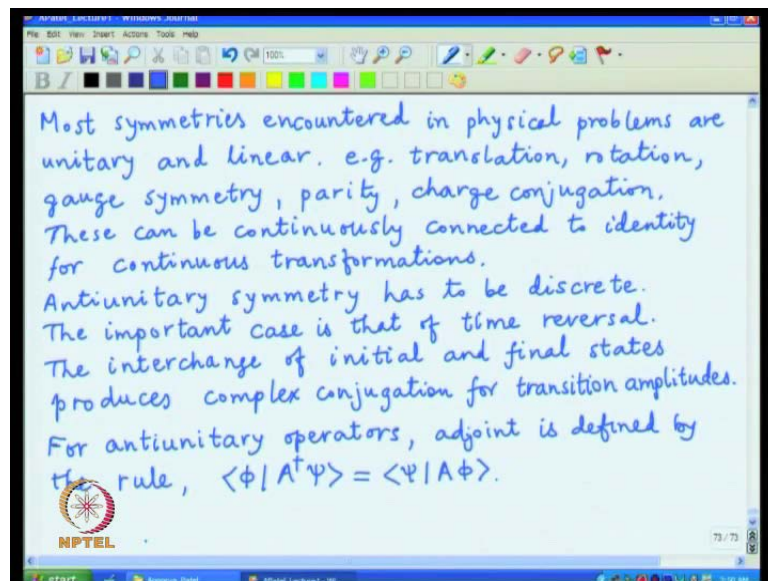 APatel_Lecture1 - Windows Journal
File Edit View Insert Actions Tools Help
100%
B I
Most symmetries encountered in physical problems are
unitary and linear. e.g. translation, rotation,
gauge symmetry, parity, charge conjugation.
These can be continuously connected to identity
for continuous transformations.
Antiunitary symmetry has to be discrete.
The important case is that of time reversal.
The interchange of initial and final states
produces complex conjugation for transition amplitudes.
For antiunitary operators, adjoint is defined by
the rule, <φ|A†Ψ> = <Ψ|Aφ>.
NPTEL
73/73
start